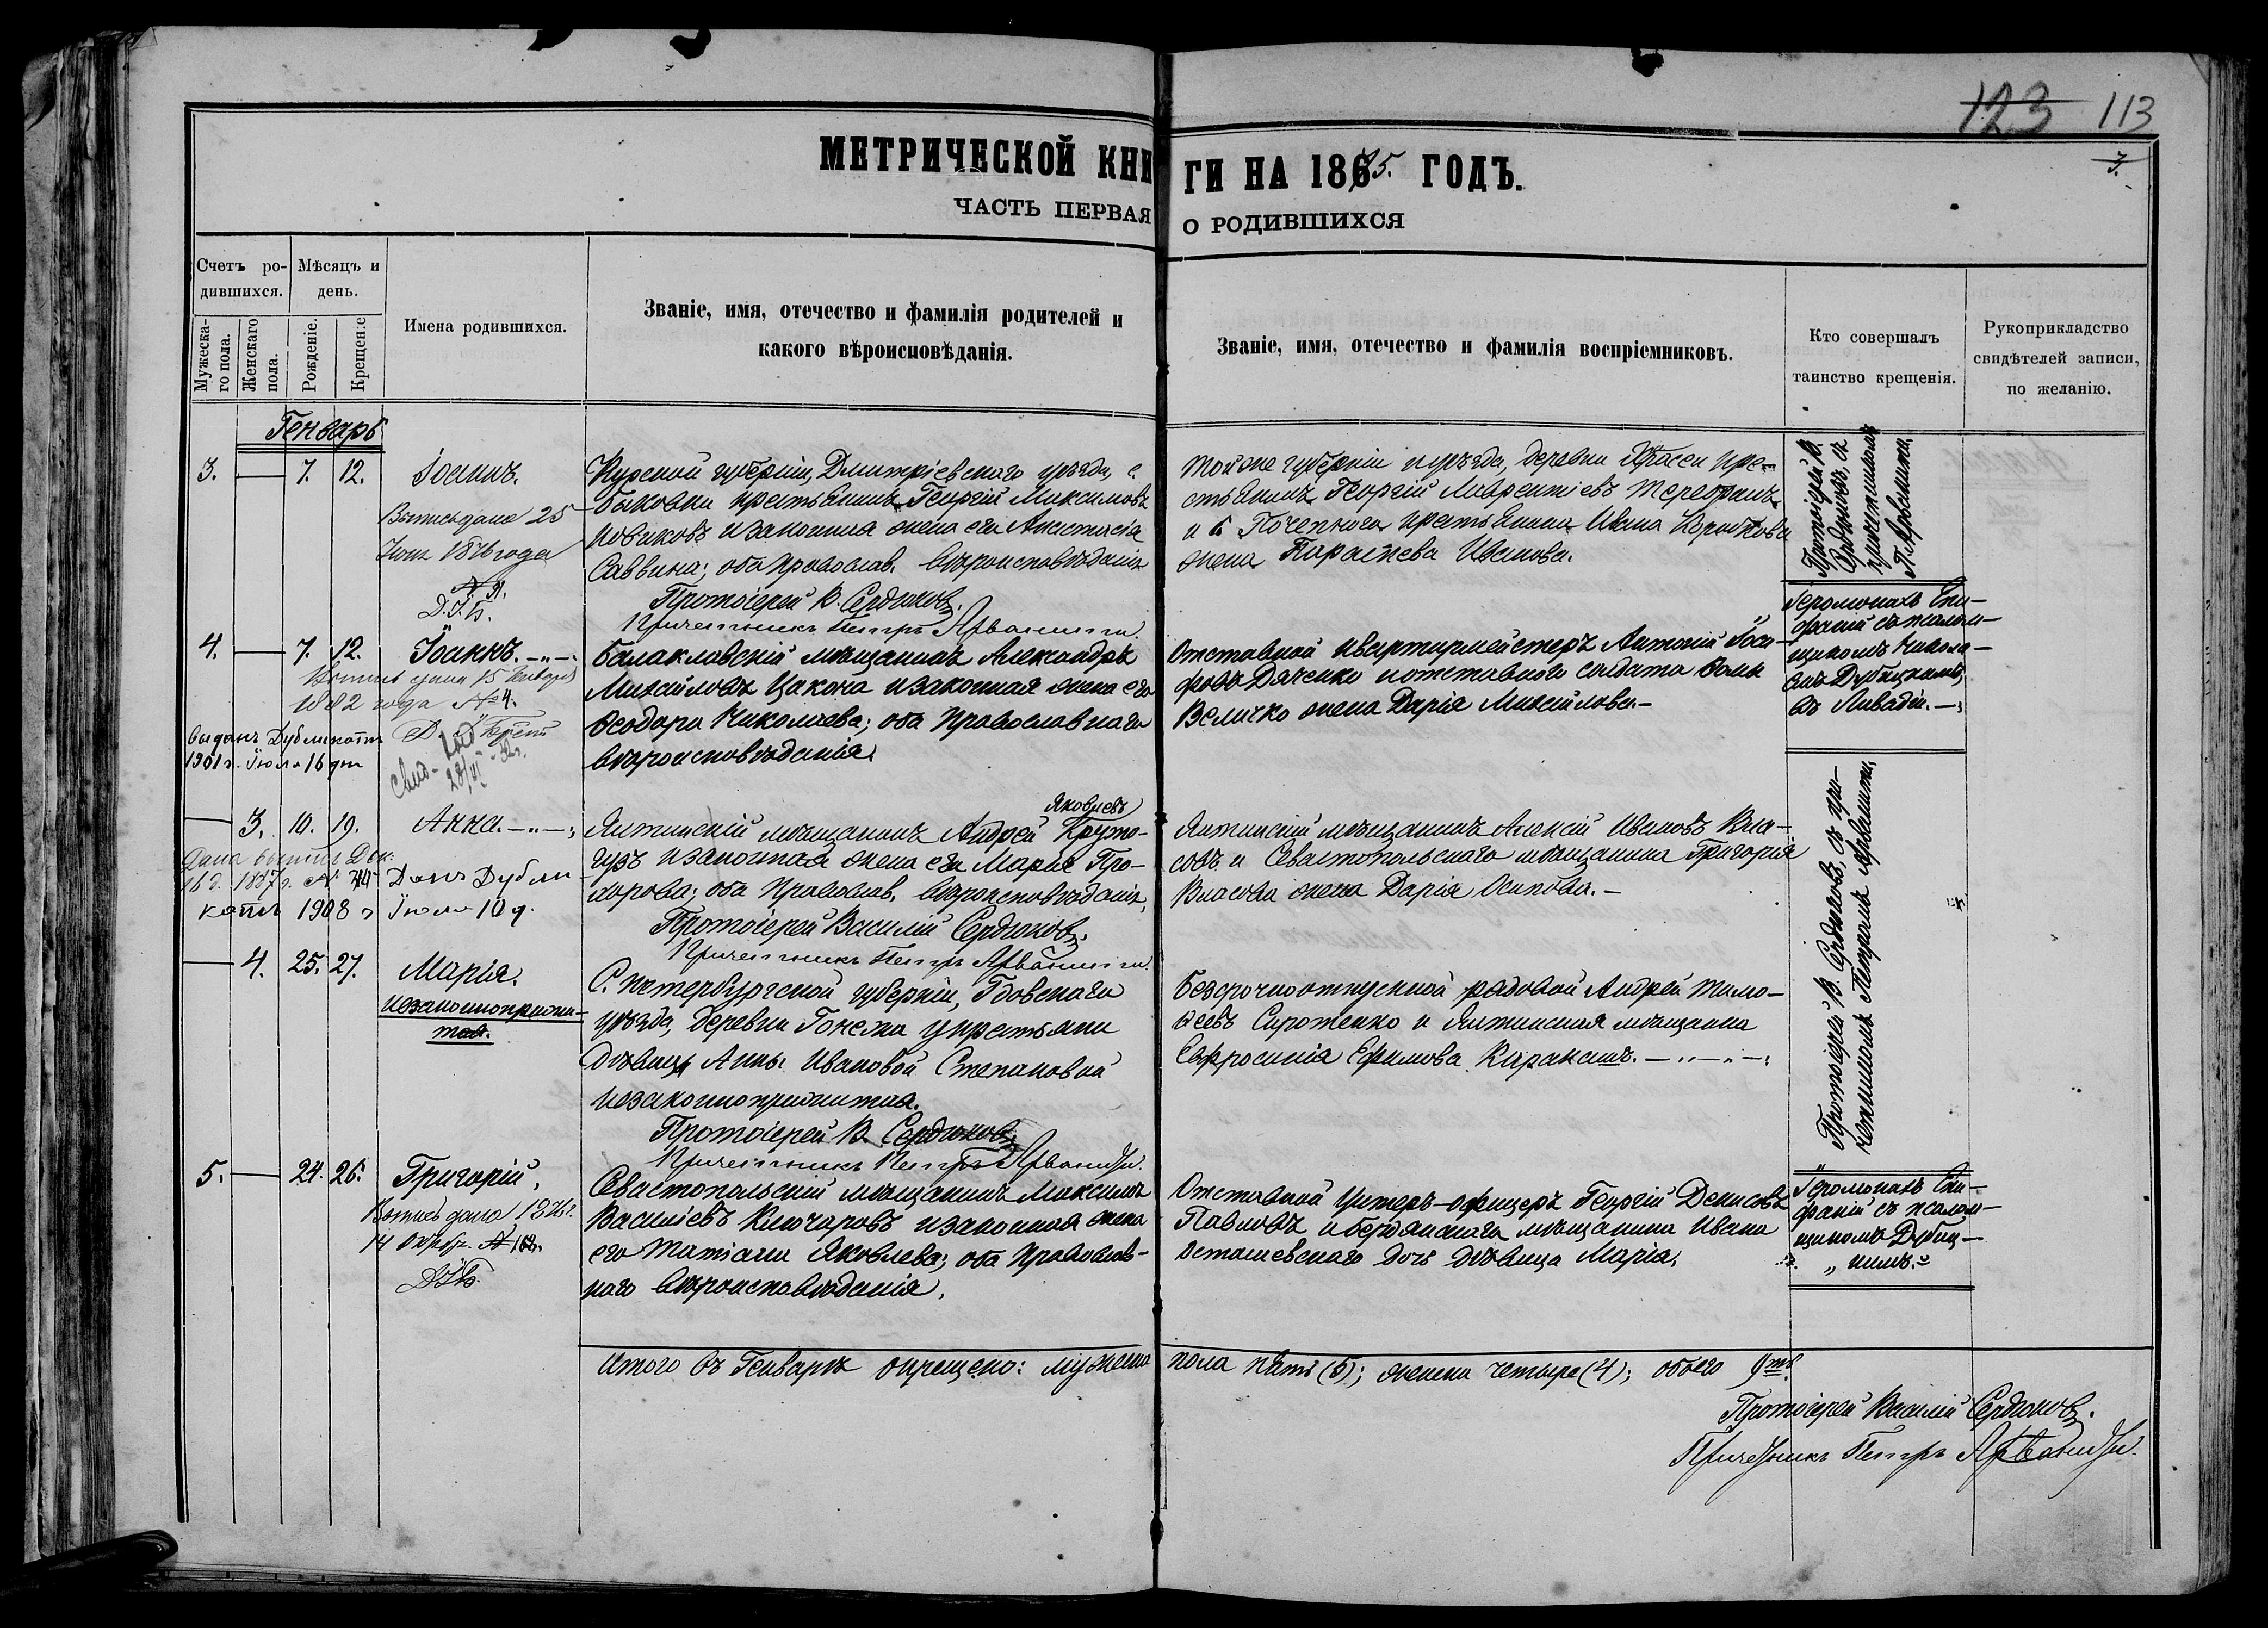 123 113
3.
МЕТРИЧЕСКОЙ КНИГИ НА 1875. ГОДЪ.
ЧАСТЬ ПЕРВАЯ О РОДИВШИХСЯ
Счетъ родившихся.
Мужескаго пола.
Женскаго пола.
Мѣсяцъ и день.
Рожденіе.
Крещеніе
Имена родившихся.
Званіе, имя, отечество и фамилія родителей и
какого вѣроисповѣданія.
Званіе, имя, отечество и фамилія воспріемниковъ.
Кто совершалъ
таинство крещенія.
Рукоприкладство
свидѣтелей записи,
по желанію.
Генварь
3. 7. 12. Іоаннъ.
Выпись дана 25
1876 года
Курской губерніи, Дмитріевскаго уѣзда, с
крестьянинъ Георгій Максимовъ
Новиковъ и законная жена его Анастасія
Саввина; оба православ. вѣроисповѣданія
Протоіерей В. Сердюковъ.
Причетникъ Петръ Арванити.
Той же губерніи и уѣзда, деревни кре-
стьянинъ Георгій Лаврентіевъ
и с. Почепнаго крестьянина Ивана
жена Параскева Иванова.
Протоіерей В.
Сердюковъ, съ
причетникомъ
П. Арванити.
4. 7. 12. Іоаннъ.
Выпись 15 Января
1882 года № 4.
выданъ Дубликатъ
1901 г. Іюля 16 дня
Балаклавскій мѣщанинъ Александръ
Михайловъ Цакона и законная жена его
Ѳеодора Николаева; оба православнаго
вѣроисповѣданія.
Отставной квартирмейстеръ Антоній Іоси-
фовъ Дяченко и отставного солдата
Величко жена Дарія Михайлова.
Іеромонахъ Епи-
фаній съ псалом-
щикомъ Никола-
емъ Дубицкимъ,
въ Ливадіи.
3. 10. 19. Анна.
Дана выпись Дек.
16 д. 1887 г. Данъ Дубли-
катъ 1908 г Іюля 10 д.
Яковлевъ
Ялтинскій мѣщанинъ Андрей Круто-
гузъ и законная жена его Марія Про-
хорова; оба православ. вѣроисповѣданія.
Протоіерей Василій Сердюковъ.
Причетникъ Петръ Арванити.
Ялтинскій мѣщанинъ Алексій Ивановъ Вла-
совъ и Севастопольскаго мѣщанина Григорія
Власова жена Дарія Осипова.
4. 25. 27. Марія.
незаконноприжи-
тая.
С. Петербургской губерніи, Гдовскаго
уѣзда, деревни Гонежа у крестьянки
дѣвицы Анны Ивановой Степановой
незаконноприжитая.
Протоіерей В. Сердюковъ.
Причетникъ Петръ Арваниди.
Безсрочноотпускной рядовой Андрей Тимо-
ѳеевъ Сиротенко и Ялтинская мѣщанка
Ефросинія Ефимова Каракашъ.
Протоіерей В. Сердюковъ, съ при-
четникомъ Петромъ Арванити.
5. 24. 26. Григорій.
Выпись дана 1876 г.
14
Севастопольскій мѣщанинъ Максимъ
Василіевъ Ключаровъ и законная жена
его Татіана Яковлева; оба православ-
наго вѣроисповѣданія.
Отставной Унтеръ-офицеръ Георгій Денисовъ
Павловъ и бердянскаго мѣщанина Ивана
Осташевскаго дочь дѣвица Марія.
Іеромонахъ Епи-
фаній съ псалом-
щикомъ Дубиц-
кимъ.
Итого въ Генварѣ окрещено: мужеска пола пять (5); женска четыре (4); обоего 9ть.
Протоіерей Василій Сердюковъ.
Причетникъ Петръ Арваниди.